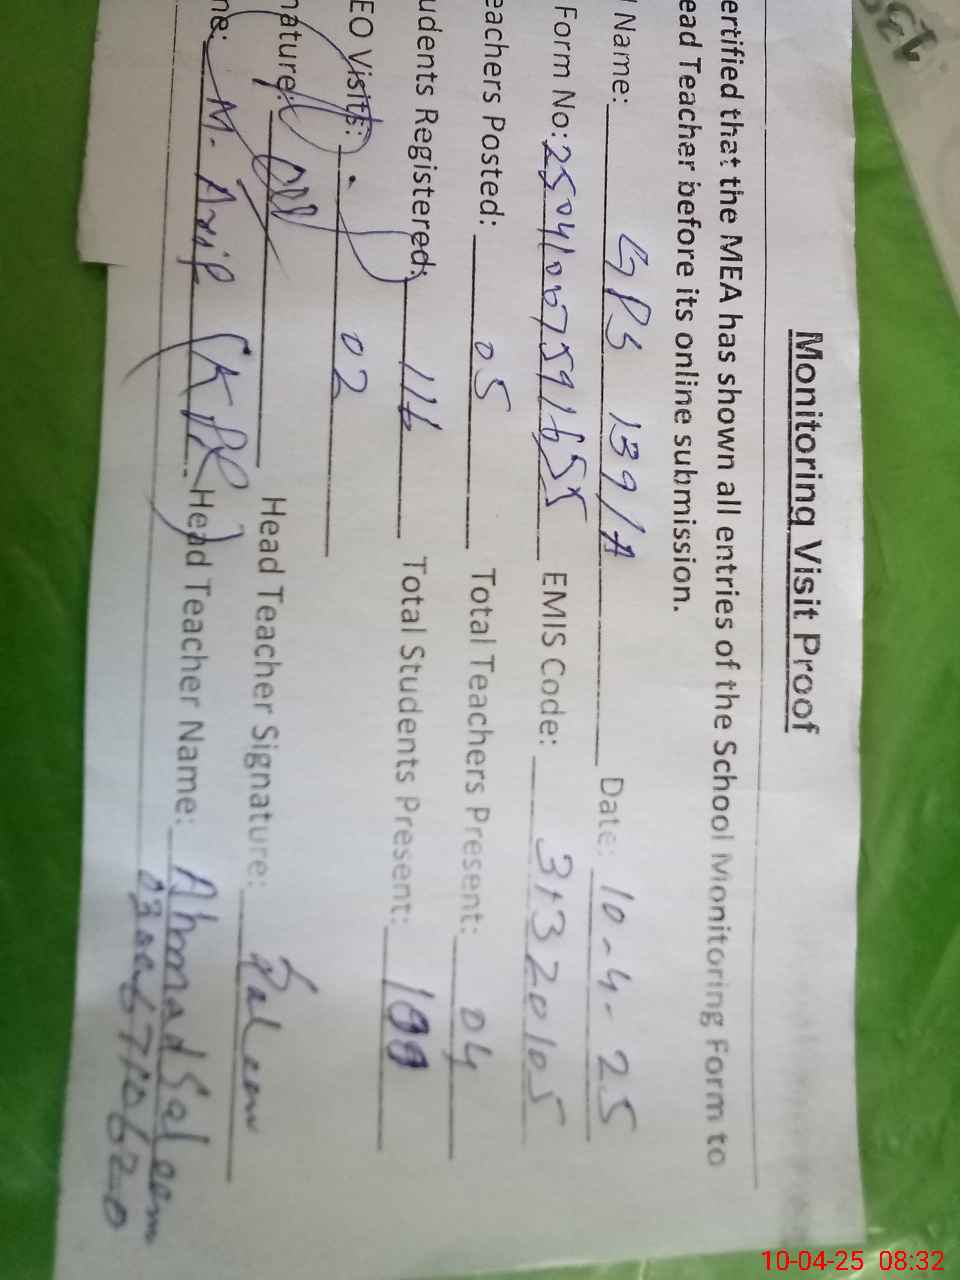 Monitoring Visit Proof
ertified that the MEA has shown all entries of the School Monitoring Form to
ead Teacher before its online submission.
Name: GPS 139/A Date: 10-4-25
Form No: EMIS Code: 31320105
eachers Posted: 05 Total Teachers Present: 04
udents Registered: 116 Total Students Present:
EO Visits: 02
nature: Head Teacher Signature: Saleem
me: M. Asif Head Teacher Name: Ahmad Saleem
10-04-25 08:32